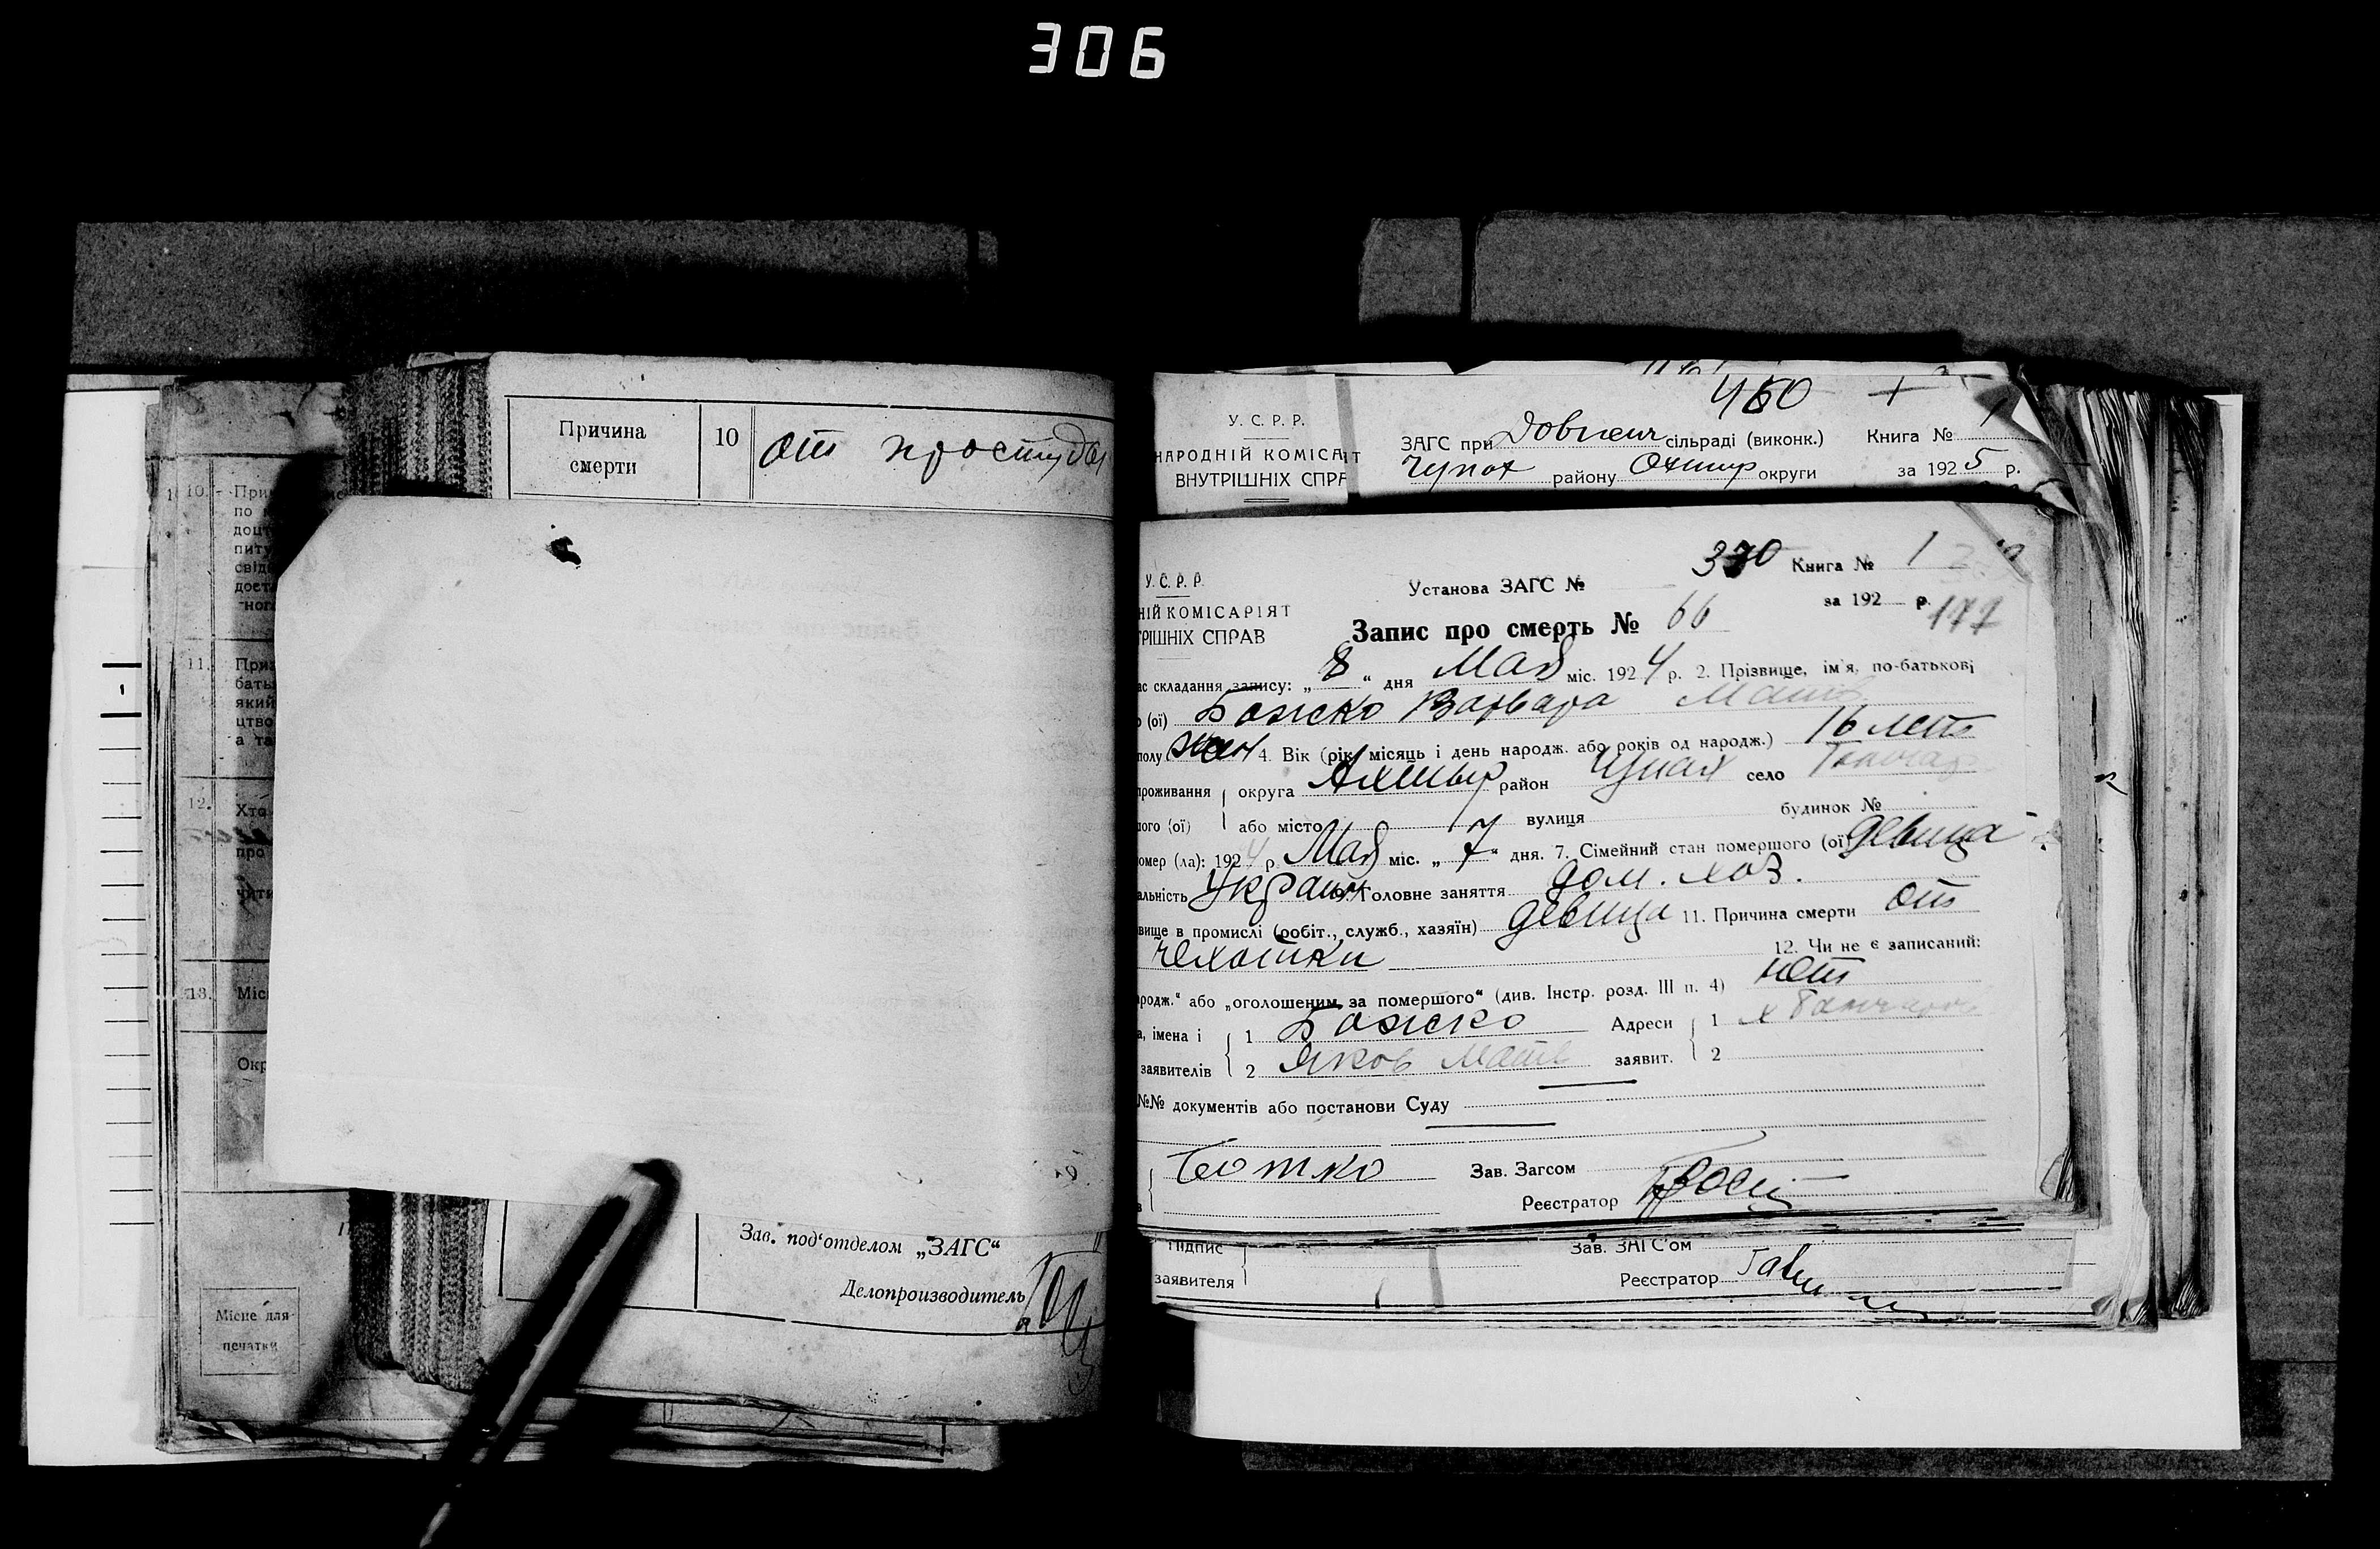 306
Причина
смерти
10
от простуды
10.
При
по
доц
питу
свід
дост
ног
11.
Приз
бать
який
цтво
а та
12.
Хто
про
чити
13.
Міс
Окр
Місце для
печатки
Зав. под'отделом „ЗАГС“
Делопроизводитель
460
У. С. Р. Р.
НАРОДНІЙ КОМІСАРІЯТ
ВНУТРІШНІХ СПРА
ЗАГС при сільраді (виконк.) Книга № 1
Чупах району Охтир округи за 1925 р.
У. С. Р. Р.
НІЙ КОМІСАРІЯТ
РІШНІХ СПРАВ
Установа ЗАГС № 330 Книга № 1
за 192 р. 177
Запис про смерть № 66
ас складання запису: „8“ дня Мая міс. 1924 р. 2. Прізвище, ім'я, по-батькові
о (ої) Божко Варвара Матв
полу жен 4. Вік (рік, місяць і день народж. або років од народж.) 16 летъ
проживання округа Ахтыр район Чупах село
ого (ої) або місто вулиця будинок №
омер (ла): 1924 р. Мая міс. „7“ дня. 7. Сімейний стан помершого (ої) девица
альність Украин Головне заняття дом. хоз.
вище в промислі (робіт., служб., хазяїн) девица 11. Причина смерти от
чехотки 12. Чи не є записаний:
родж.“ або „оголошеним за помершого“ (див. Інстр. розд. III п. 4) нет
а, імена і 1 Божко Адреси 1 х
заявителів 2 Яков Матв заявит. 2
№№ документів або постанови Суду
Божко Зав. Загсом
Реєстратор
Підпис Зав. ЗАГС'ом
заявителя Реєстратор